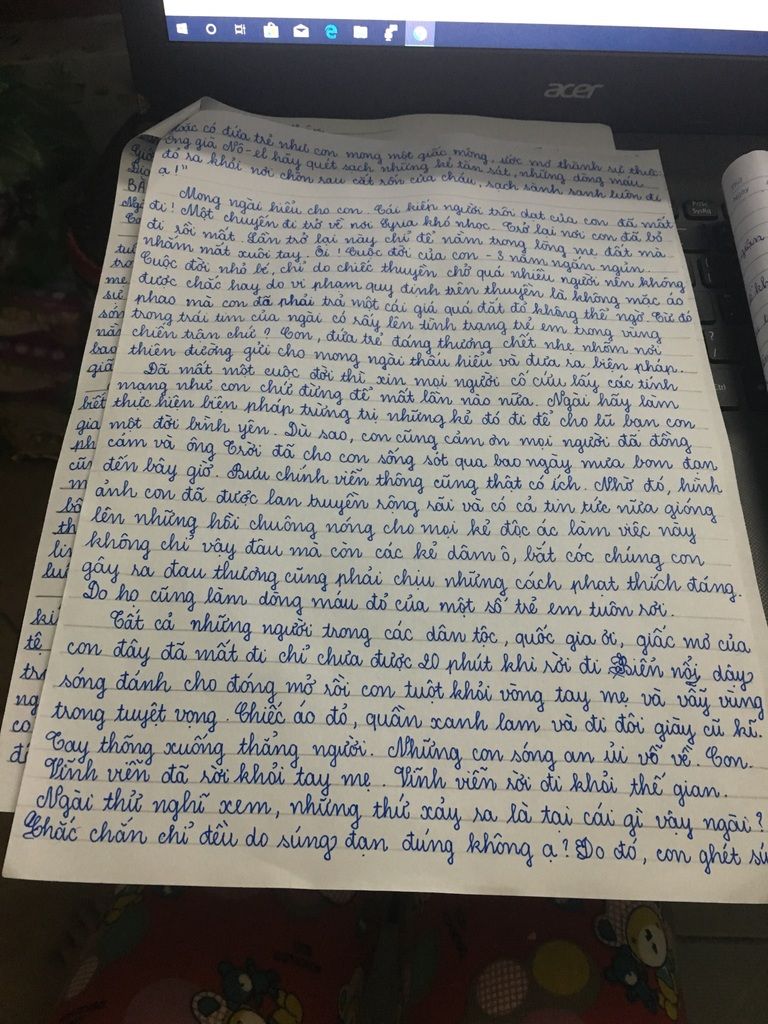 acer
có đứa trẻ như con mong một giấc mộng, ước mơ thành sự thực.
Ông già Nô-el hãy quét sạch những kẻ tàn sát, những dòng máu
đỏ ra khỏi nơi chôn rau cắt rốn của cháu, sạch sành sanh luôn đi
ạ!"
Mong ngài hiểu cho con. Cái kiếp người trôi dạt của con đã mất
đi! Một chuyến đi trở về nơi Syria khó nhọc. Trở lại nơi con đã bỏ
đi rồi mất. Lần trở lại này chỉ để nằm trong lòng mẹ đất mà
nhắm mắt xuôi tay. Ôi! Cuộc đời của con - 3 năm ngắn ngủn.
Cuộc đời nhỏ bé, chỉ do chiếc thuyền chở quá nhiều người nên không
được chắc hay do vi phạm quy định trên thuyền là không mặc áo
phao mà con đã phải trả một cái giá quá đắt đỏ không thể ngờ. Từ đó
trong trái tim của ngài có rấy lên tình trạng trẻ em trong vùng
chiến trận chứ? Con, đứa trẻ đáng thương chết nhẹ nhõm nơi
thiên đường gửi cho mong ngài thấu hiểu và đưa ra biện pháp.
Đã mất một cuộc đời thì xin mọi người cố cứu lấy các tính
mạng như con chứ đừng để mất lần nào nữa. Ngài hãy làm
thực hiện biện pháp trừng trị những kẻ đó đi để cho lũ bạn con
một đời bình yên. Dù sao, con cũng cảm ơn mọi người đã đồng
cảm và ông Trời đã cho con sống sót qua bao ngày mưa bom đạn
đến bây giờ. Bưu chính viễn thông cũng thật có ích. Nhờ đó, hình
ảnh con đã được lan truyền rộng rãi và có cả tin tức nữa gióng
lên những hồi chuông nóng cho mọi kẻ độc ác làm việc này
không chỉ vậy đâu mà còn các kẻ dâm ô, bắt cóc chúng con
gây ra đau thương cũng phải chịu những cách phạt thích đáng.
Do họ cũng làm dòng máu đỏ của một số trẻ em tuôn rơi.
Tất cả những người trong các dân tộc, quốc gia ơi, giấc mơ của
con đây đã mất đi chỉ chưa được 20 phút khi rời đi Biển nổi dậy
sóng đánh cho đóng mở rồi con tuột khỏi vòng tay mẹ và vẫy vùng
trong tuyệt vọng. Chiếc áo đỏ, quần xanh lam và đi đôi giày cũ kĩ.
Tay thõng xuống thẳng người. Những con sóng an ủi vỗ về. Con.
Vĩnh viễn đã rời khỏi tay mẹ. Vĩnh viễn rời đi khỏi thế gian.
Ngài thử nghĩ xem, những thứ xảy ra là tại cái gì vậy ngài?
Chắc chắn chỉ đều do súng đạn đúng không ạ? Do đó, con ghét